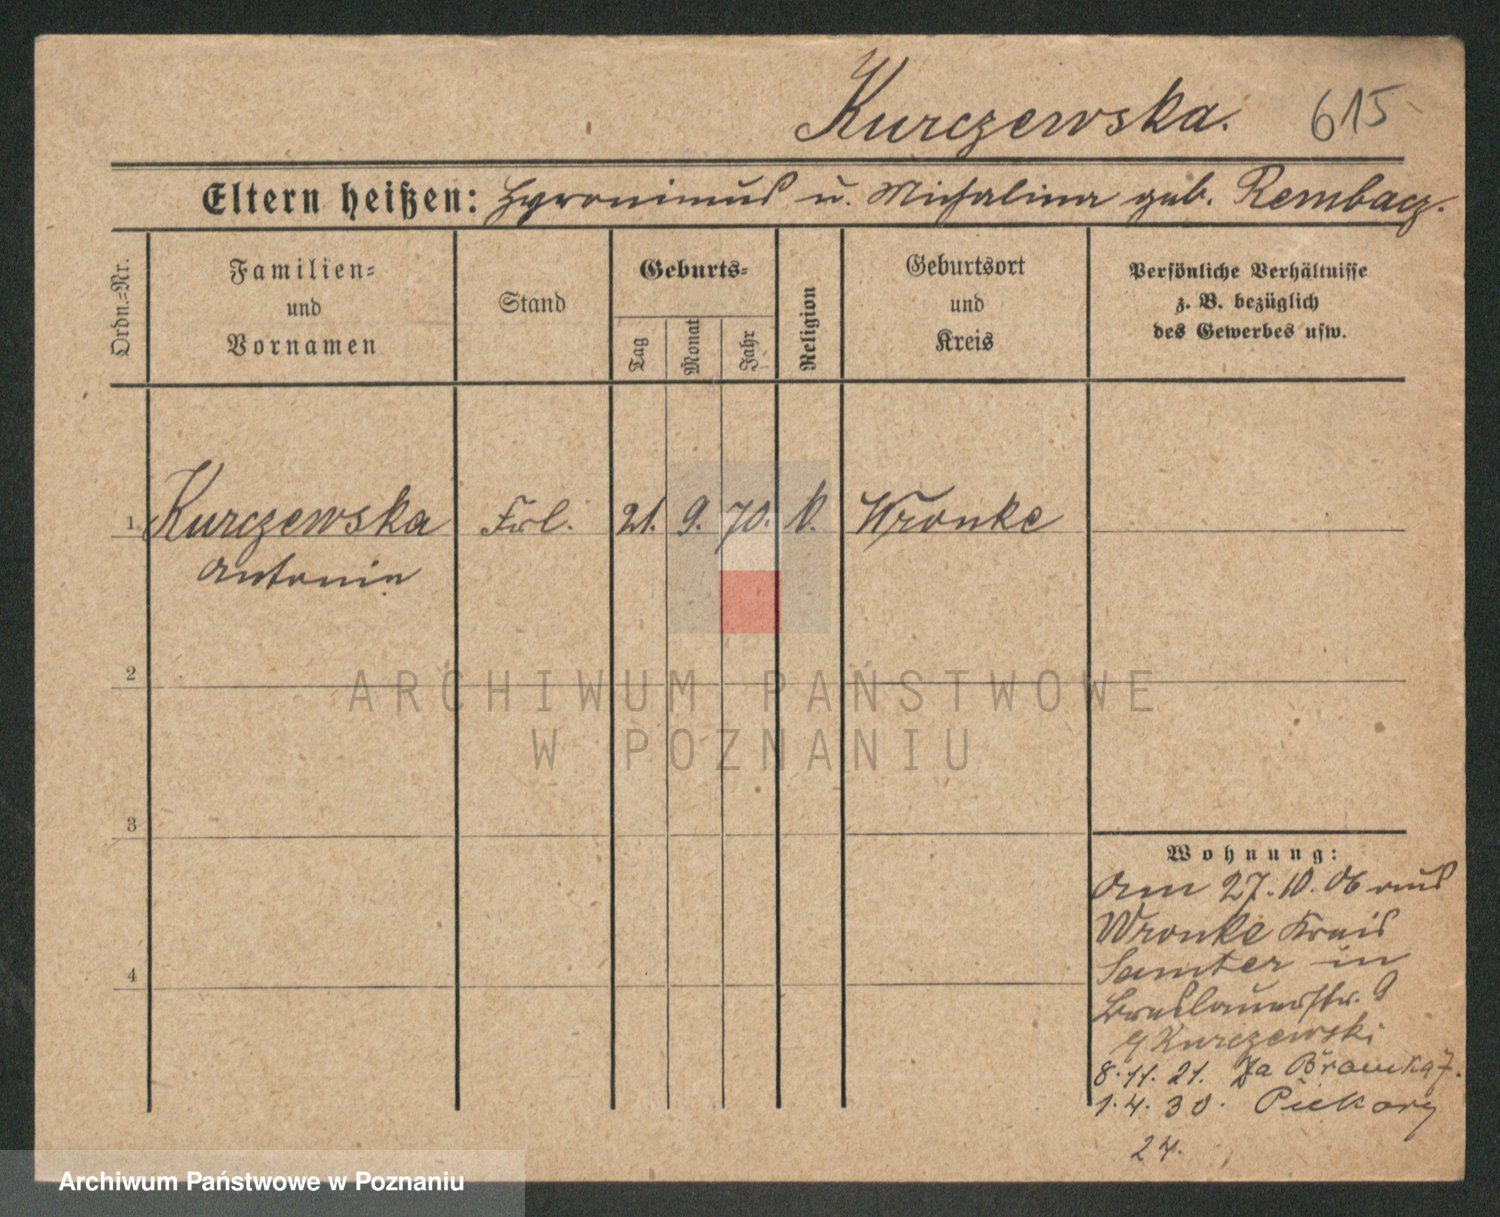 Kurczewska. 615
Eltern heißen: Hyronimus u. Michalina geb. Rembacz.
Ordn.=Nr.
Familien=
und
Vornamen
Stand
Geburts=
Tag
Monat
Jahr
Religion
Geburtsort
und
Kreis
Persönliche Verhältnisse
z. B. bezüglich
des Gewerbes usw.
1 Kurczewska Frl. 21. 9. 70. k. Wronke
Antonie
2
3
4
ARCHIWUM PAŃSTWOWE
W POZNANIU
Wohnung:
Am 27.10.06 aus
Wronke Kreis
Samter in
Breslauerstr. 9
Kurczewski
8.11.21. 7.
1.4.30. Piekary
24.
Archiwum Państwowe w Poznaniu